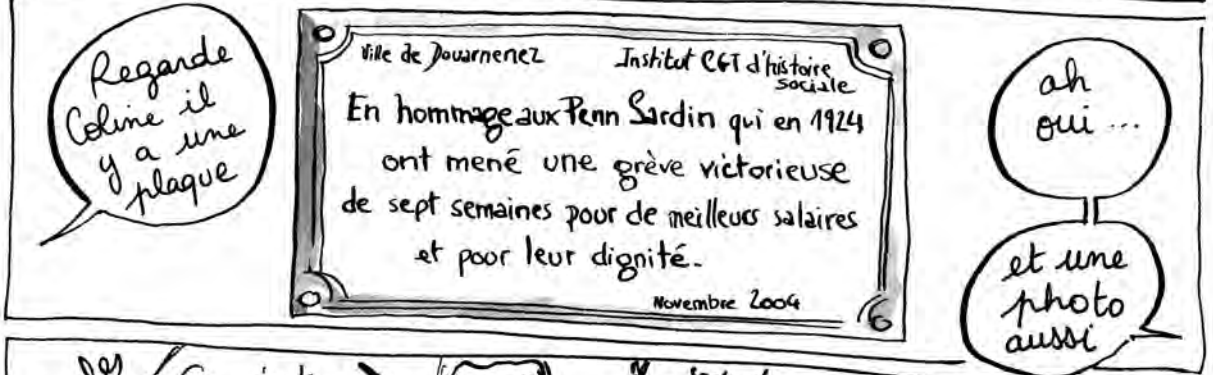 Regarde
Coline il
y a une
plaque
Ville de Douarnenez
Institut CGT d'histoire
sociale
En hommage aux Penn Sardin qui en 1924
ont mené une grève victorieuse
de sept semaines pour de meilleurs salaires
et pour leur dignité.
Novembre 2004
ah
oui ...
et une
photo
aussi
des